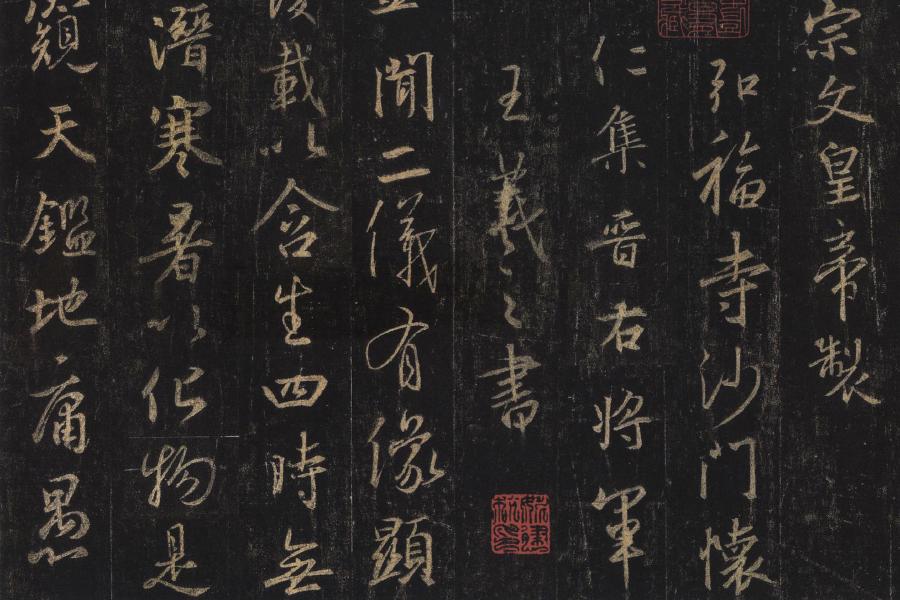 宗文皇帝製
弘福寺沙門懷
仁集晉右將軍
王羲之書
聞二儀有像顯
載以含生四時無
潛寒暑以化物是
窺天鑑地庸愚